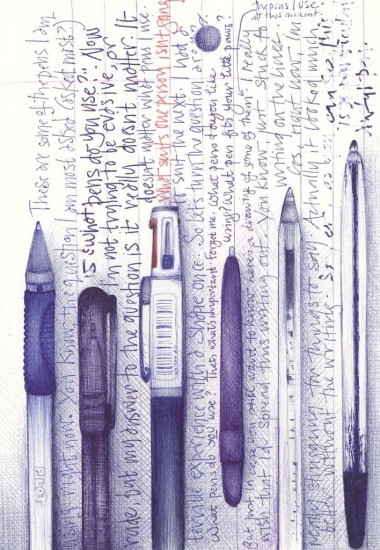 These are some of the pens I am
using right now. You know the question I am most asked (or asked most?)
is 'what pens do you use?'. Now
I'm not trying to be evasive, or
rude but my answer to the question is it really doesn't matter. It
doesn't matter what pens I use
What suits one person isn't going
suit the next. I had a
terrible experience with a Sharpie once. So let's turn the question around.
What pens do you use? That's what's important. Forget me. What pens do you like
using? What pen fits your little paws?
But just in case you still want to know here's a drawing of some of them. I really
the pens I use
at this moment.
wish that I'd this writing out. You know, just stuck to
writing on the lines.
as right now I'm
really struggling for things to say. Actually it looked much
better without the writing. So
PILOT